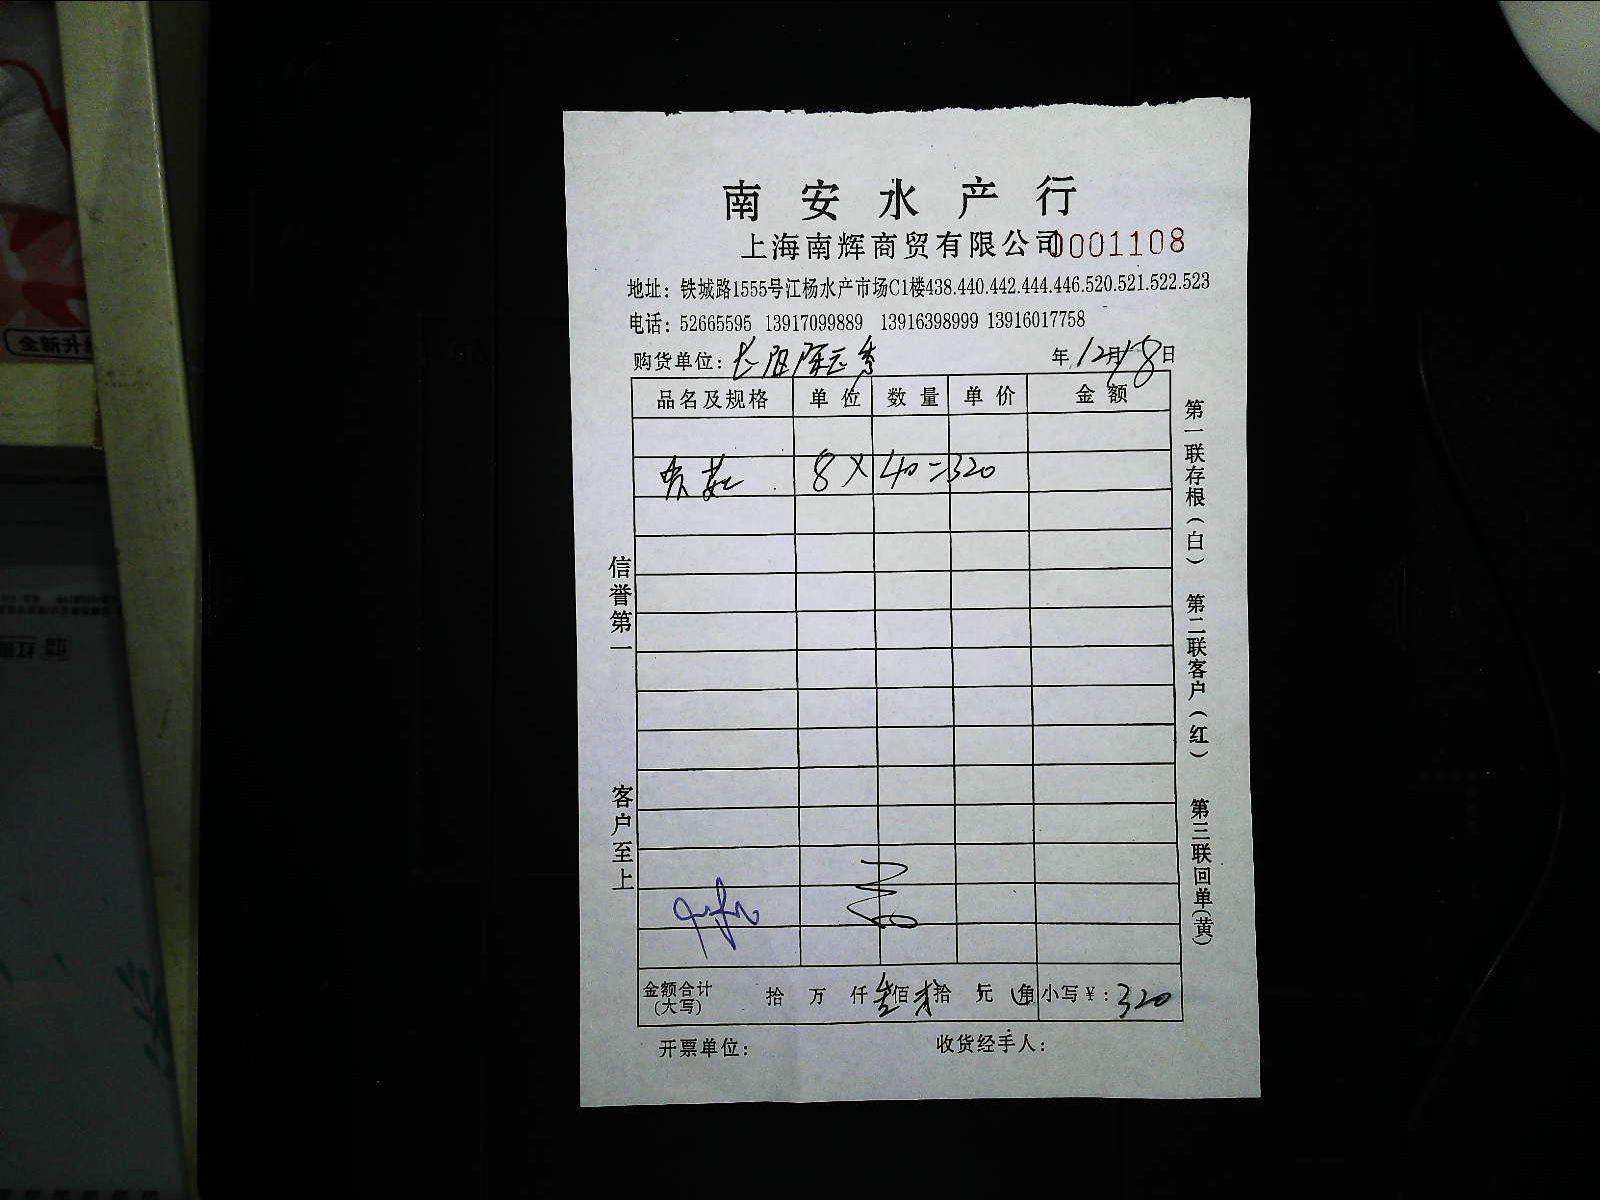 南安水产行
上海南辉商贸有限公司 0001108
地址：铁城路1555号江杨水产市场C1楼438.440.442.444.446.520.521.522.523
电话：52665595 13917099889 13916398999 13916017758
购货单位：长阳 年12月18日
品名及规格 单位 数量 单价 金额
8×40=320
金额合计(大写) 拾 万 仟叁佰 拾 元 角 小写￥：320
开票单位： 收货经手人：
信誉第一 客户至上
第一联存根（白） 第二联客户（红） 第三联回单（黄）
全新升